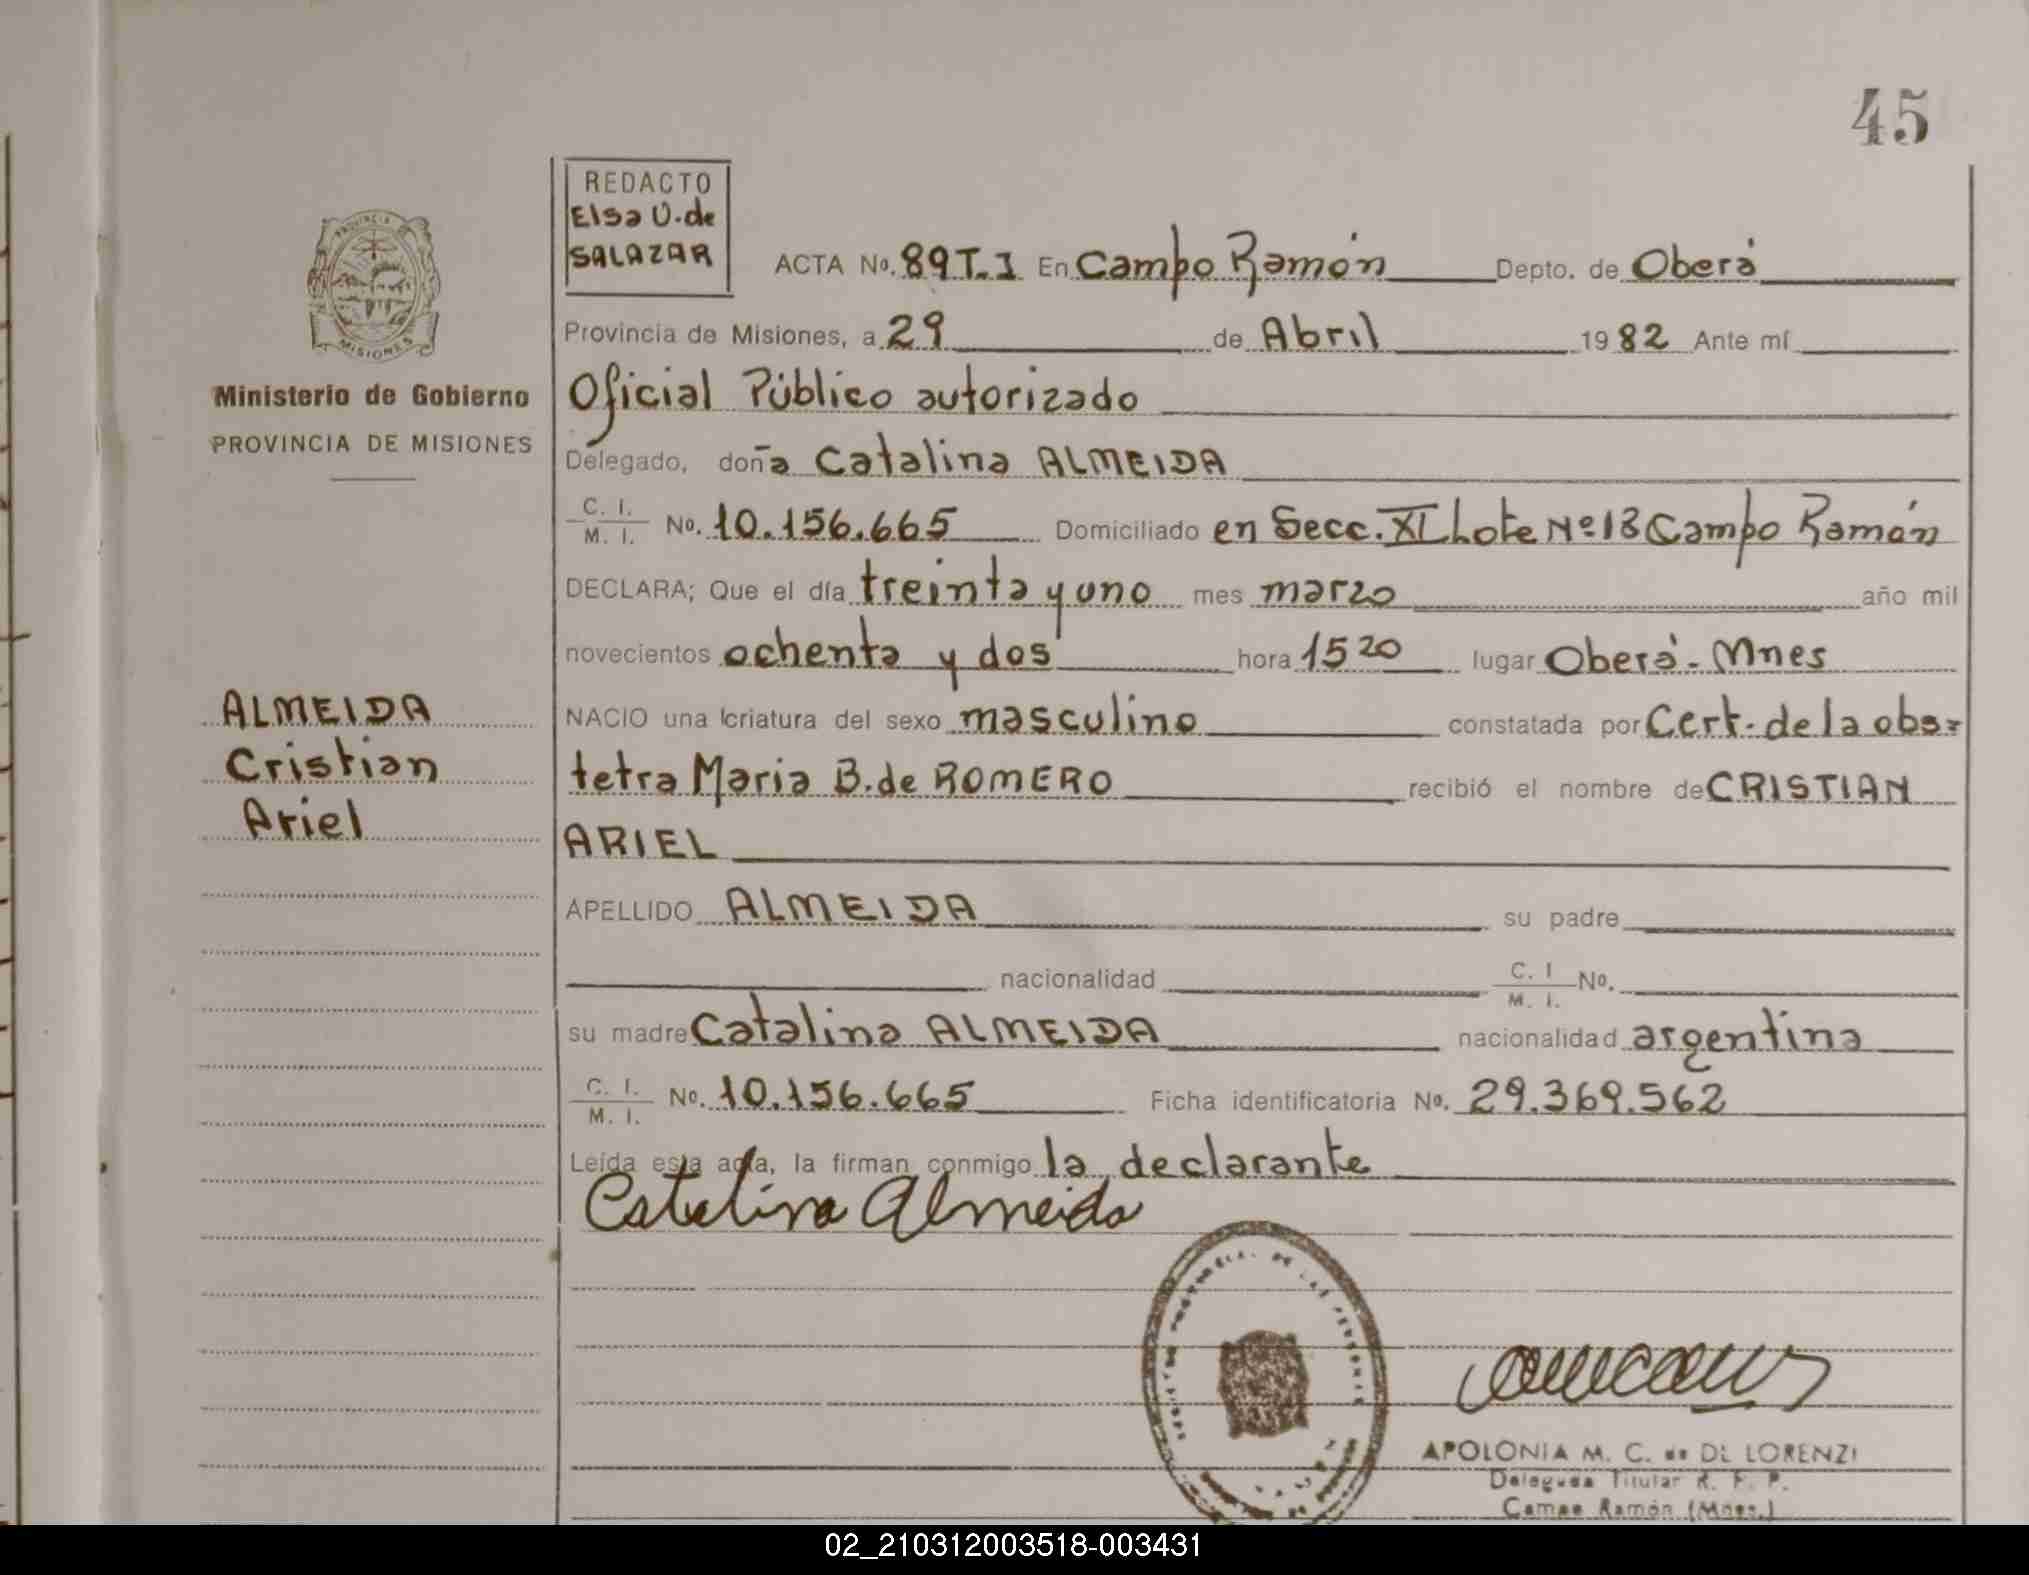 45
REDACTO
Elsa U. de
SALAZAR
PROVINCIA
MISIONES
Ministerio de Gobierno
PROVINCIA DE MISIONES
ACTA No. 89 T.I En Campo Ramón Depto. de Oberá
Provincia de Misiones, a 29 de Abril 1982 Ante mí
Oficial Público autorizado
Delegado, doña Catalina ALMEIDA
C. I. M. I. No. 10.156.665 Domiciliado en Secc. XI Lote Nº 13 Campo Ramón
DECLARA; Que el día treinta y uno mes marzo año mil
novecientos ochenta y dos hora 15 20 lugar Oberá - Mnes
NACIO una criatura del sexo masculino constatada por Cert. de la obs=
tetra Maria B. de ROMERO recibió el nombre de CRISTIAN
ARIEL
ALMEIDA
Cristian
Ariel
APELLIDO ALMEIDA su padre
nacionalidad C. I M. I. No.
su madre Catalina ALMEIDA nacionalidad argentina
C. I. M. I. No. 10.156.665 Ficha identificatoria No. 29.369.562
Leída esta acta, la firman conmigo la declarante
Catalina Almeida
APOLONIA M. C. de DE LORENZI
Delegada Titular R. P. P.
Campo Ramón (Mnes.)
02_210312003518-003431